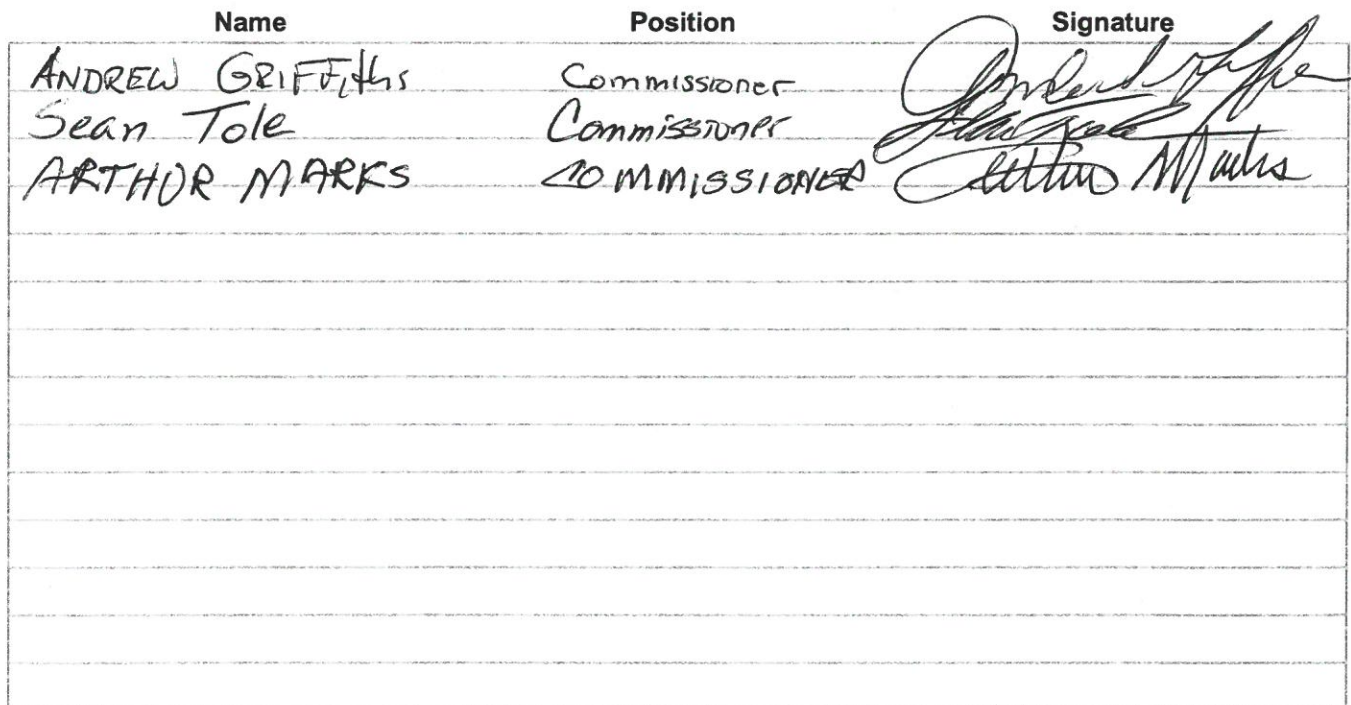 Name Position Signature
ANDREW GRIFFiths Commissioner
Sean Tole Commissioner Sean Tole
ARTHUR MARKS COMMISSIONER Arthur Marks